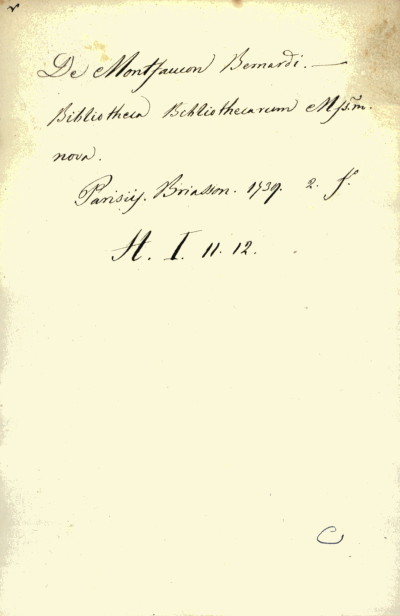 De Montfaucon Bernardi. —
Bibliotheca Bibliothecarum Mss̃m.
nova.
Parisiis. Briasson. 1739. 2. f.º
H. I. 11. 12.
C